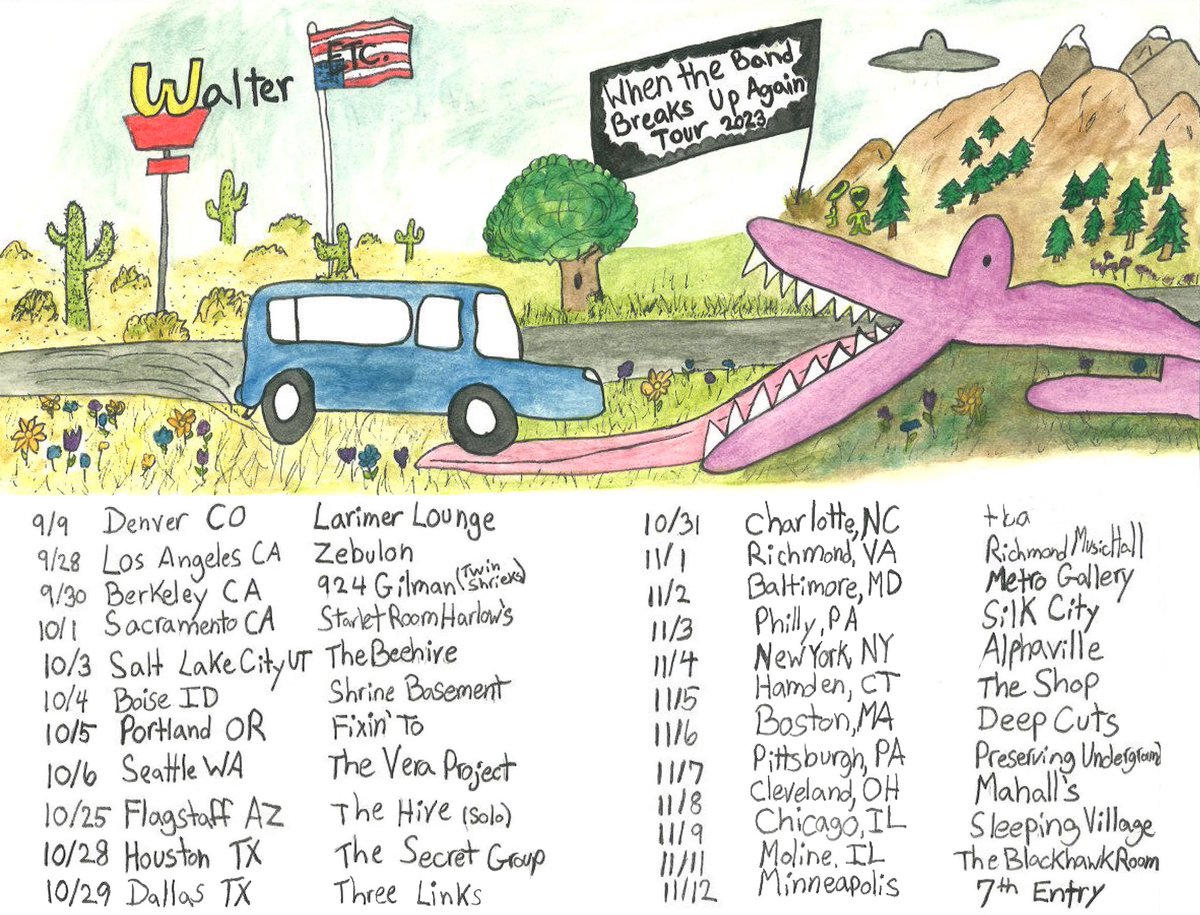 Walter
ETC.
When the Band
Breaks Up Again
Tour 2023
9/9 Denver CO Larimer Lounge
9/28 Los Angeles CA Zebulon
9/30 Berkeley CA 924 Gilman (Twin Shrieks)
10/1 Sacramento CA Starlet Room Harlow's
10/3 Salt Lake City UT The Beehive
10/4 Boise ID Shrine Basement
10/5 Portland OR Fixin' To
10/6 Seattle WA The Vera Project
10/25 Flagstaff AZ The Hive (Solo)
10/28 Houston TX The Secret Group
10/29 Dallas TX Three Links
10/31 Charlotte, NC tba
11/1 Richmond, VA Richmond Music Hall
11/2 Baltimore, MD Metro Gallery
11/3 Philly, PA Silk City
11/4 New York, NY Alphaville
11/5 Hamden, CT The Shop
11/6 Boston, MA Deep Cuts
11/7 Pittsburgh, PA Preserving Underground
11/8 Cleveland, OH Mahall's
11/9 Chicago, IL Sleeping Village
11/11 Moline, IL The Blackhawk Room
11/12 Minneapolis 7th Entry